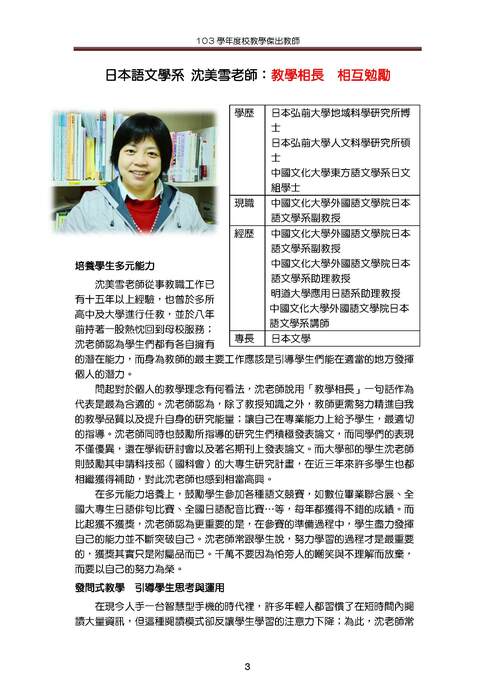 103 學年度校教學傑出教師
日本語文學系 沈美雪老師：教學相長　相互勉勵
學歷
日本弘前大學地域科學研究所博
士
日本弘前大學人文科學研究所碩
士
中國文化大學東方語文學系日文
組學士
現職
中國文化大學外國語文學院日本
語文學系副教授
經歷
中國文化大學外國語文學院日本
語文學系副教授
中國文化大學外國語文學院日本
語文學系助理教授
明道大學應用日語系助理教授
中國文化大學外國語文學院日本
語文學系講師
專長
日本文學
培養學生多元能力
沈美雪老師從事教職工作已
有十五年以上經驗，也曾於多所
高中及大學進行任教，並於八年
前持著一股熱忱回到母校服務；
沈老師認為學生們都有各自擁有
的潛在能力，而身為教師的最主要工作應該是引導學生們能在適當的地方發揮
個人的潛力。
問起對於個人的教學理念有何看法，沈老師說用「教學相長」一句話作為
代表是最為合適的。沈老師認為，除了教授知識之外，教師更需努力精進自我
的教學品質以及提升自身的研究能量；讓自己在專業能力上給予學生，最適切
的指導。沈老師同時也鼓勵所指導的研究生們積極發表論文，而同學們的表現
不僅優異，還在學術研討會以及著名期刊上發表論文。而大學部的學生沈老師
則鼓勵其申請科技部（國科會）的大專生研究計畫，在近三年來許多學生也都
相繼獲得補助，對此沈老師也感到相當高興。
在多元能力培養上，鼓勵學生參加各種語文競賽，如數位畢業聯合展、全
國大專生日語俳句比賽、全國日語配音比賽…等，每年都獲得不錯的成績。而
比起獲不獲獎，沈老師認為更重要的是，在參賽的準備過程中，學生盡力發揮
自己的能力並不斷突破自己。沈老師常跟學生說，努力學習的過程才是最重要
的，獲獎其實只是附屬品而已。千萬不要因為怕旁人的嘲笑與不理解而放棄，
而要以自己的努力為榮。
發問式教學　引導學生思考與運用
在現今人手一台智慧型手機的時代裡，許多年輕人都習慣了在短時間內閱
讀大量資訊，但這種閱讀模式卻反讓學生學習的注意力下降；為此，沈老師常
3